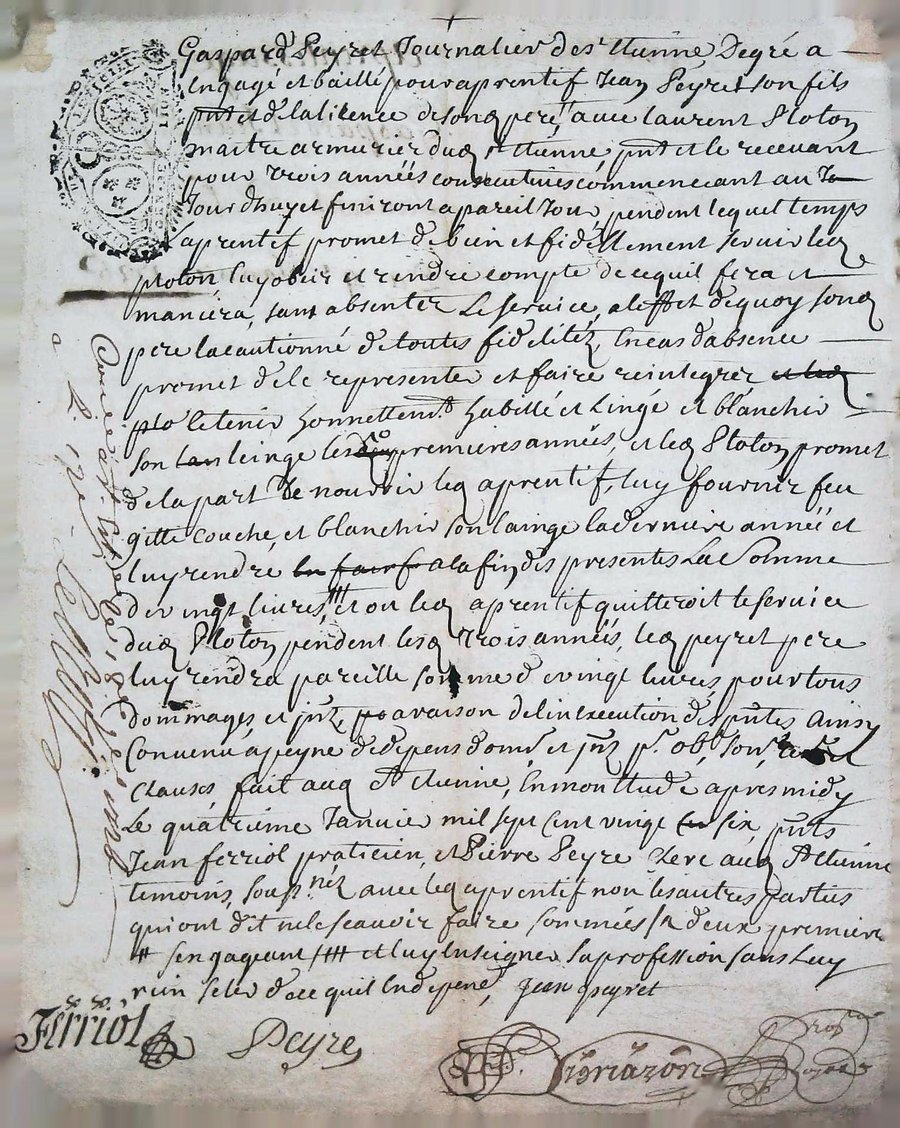 Gaspard Peyret Journalier de St Etiinne, De gré a
engagé et baillé pour aprentif Jean Peyret son fils
pnt et de la licence de sond pere avec laurent Ploton
maitre armurier dud St Etiinne, pnt et le recevant
pour trois années consecutives commencant au
Jourdhuy et finiront a pareil Jour, pendent lequel temps
l'aprentif promet de bien et fidellement servir led
ploton luy obeir et rendre compte de ce quil fera et
maniera, sans absenter le service, a leffet dequoy sond
pere la cautionné de toutes fidelitéz, En cas dabsence
promet de le representer et faire reintegrer et led
plo le tenir honnettemt habillé et Lingé et blanchir
son leinge les premieres années, et led Ploton promet
de la part de nourrir led aprentif, luy fournir feu
gitte couche, et blanchir son lainge la derniere année et
luy rendre a la fin des presentes La Somme
de vingt livres, et ou led aprentif quitteroit le service
dud Ploton pendent lesd trois années, led peyret pere
luy rendra pareille somme de vingt livres pour tous
dommages et jnz, a raison de linexecution des pntes Ainsy
Convenu a peyne de depens dom et jnz ps. obn.
clauses fait aud St Etiinne, En mon Etude apres midy
Le quatrieme Janvier mil sept Cent vingt six, pnts
Jean ferriol praticien, et Pierre Peyre Clerc aud St Etiinne
temoins, soussnéz avec led aprentif non les autres parties
qui ont dit ne le scavoir faire sommés deux premiere
# s'engageant #### et luy Enseigner sa profession sans Luy
rien seler de ce quil En depend, Jean Peyret
Ferriol Peyre
Con
a St Et le 18e